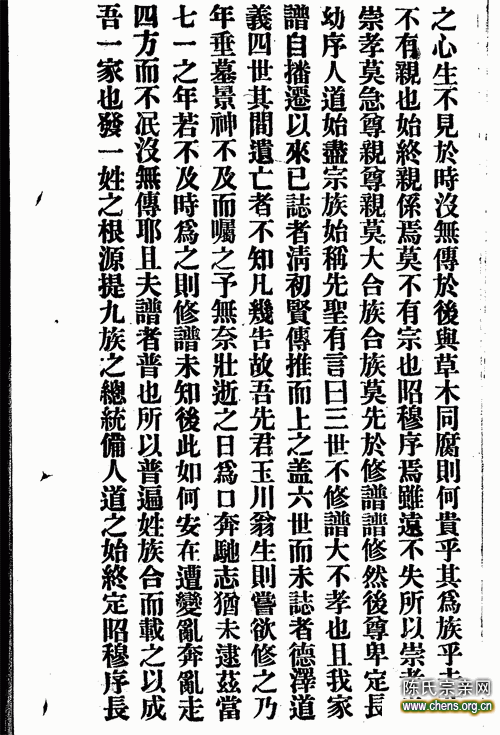 之心生不見於時沒無傳於後與草木同腐則何貴乎其爲族乎夫
不有親也始終親係焉莫不有宗也昭穆序焉雖遠不失所以崇孝
崇孝莫急尊親尊親莫大合族合族莫先於修譜譜修然後尊卑定長
幼序人道始盡宗族始稱先聖有言曰三世不修譜大不孝也且我家
譜自播遷以來已誌者淸初賢傳推而上之盖六世而未誌者德澤道
義四世其間遺亡者不知凡幾吿故吾先君玉川翁生則嘗欲修之乃
年垂墓景神不及而囑之予無奈壯逝之日爲口奔馳志猶未逮茲當
七一之年若不及時爲之則修譜未知後此如何安在遭變亂奔亂走
四方而不泯沒無傳耶且夫譜者普也所以普遍姓族合而載之以成
吾一家也發一姓之根源提九族之總統備人道之始終定昭穆序長
陈氏宗亲网
www.chens.org.cn